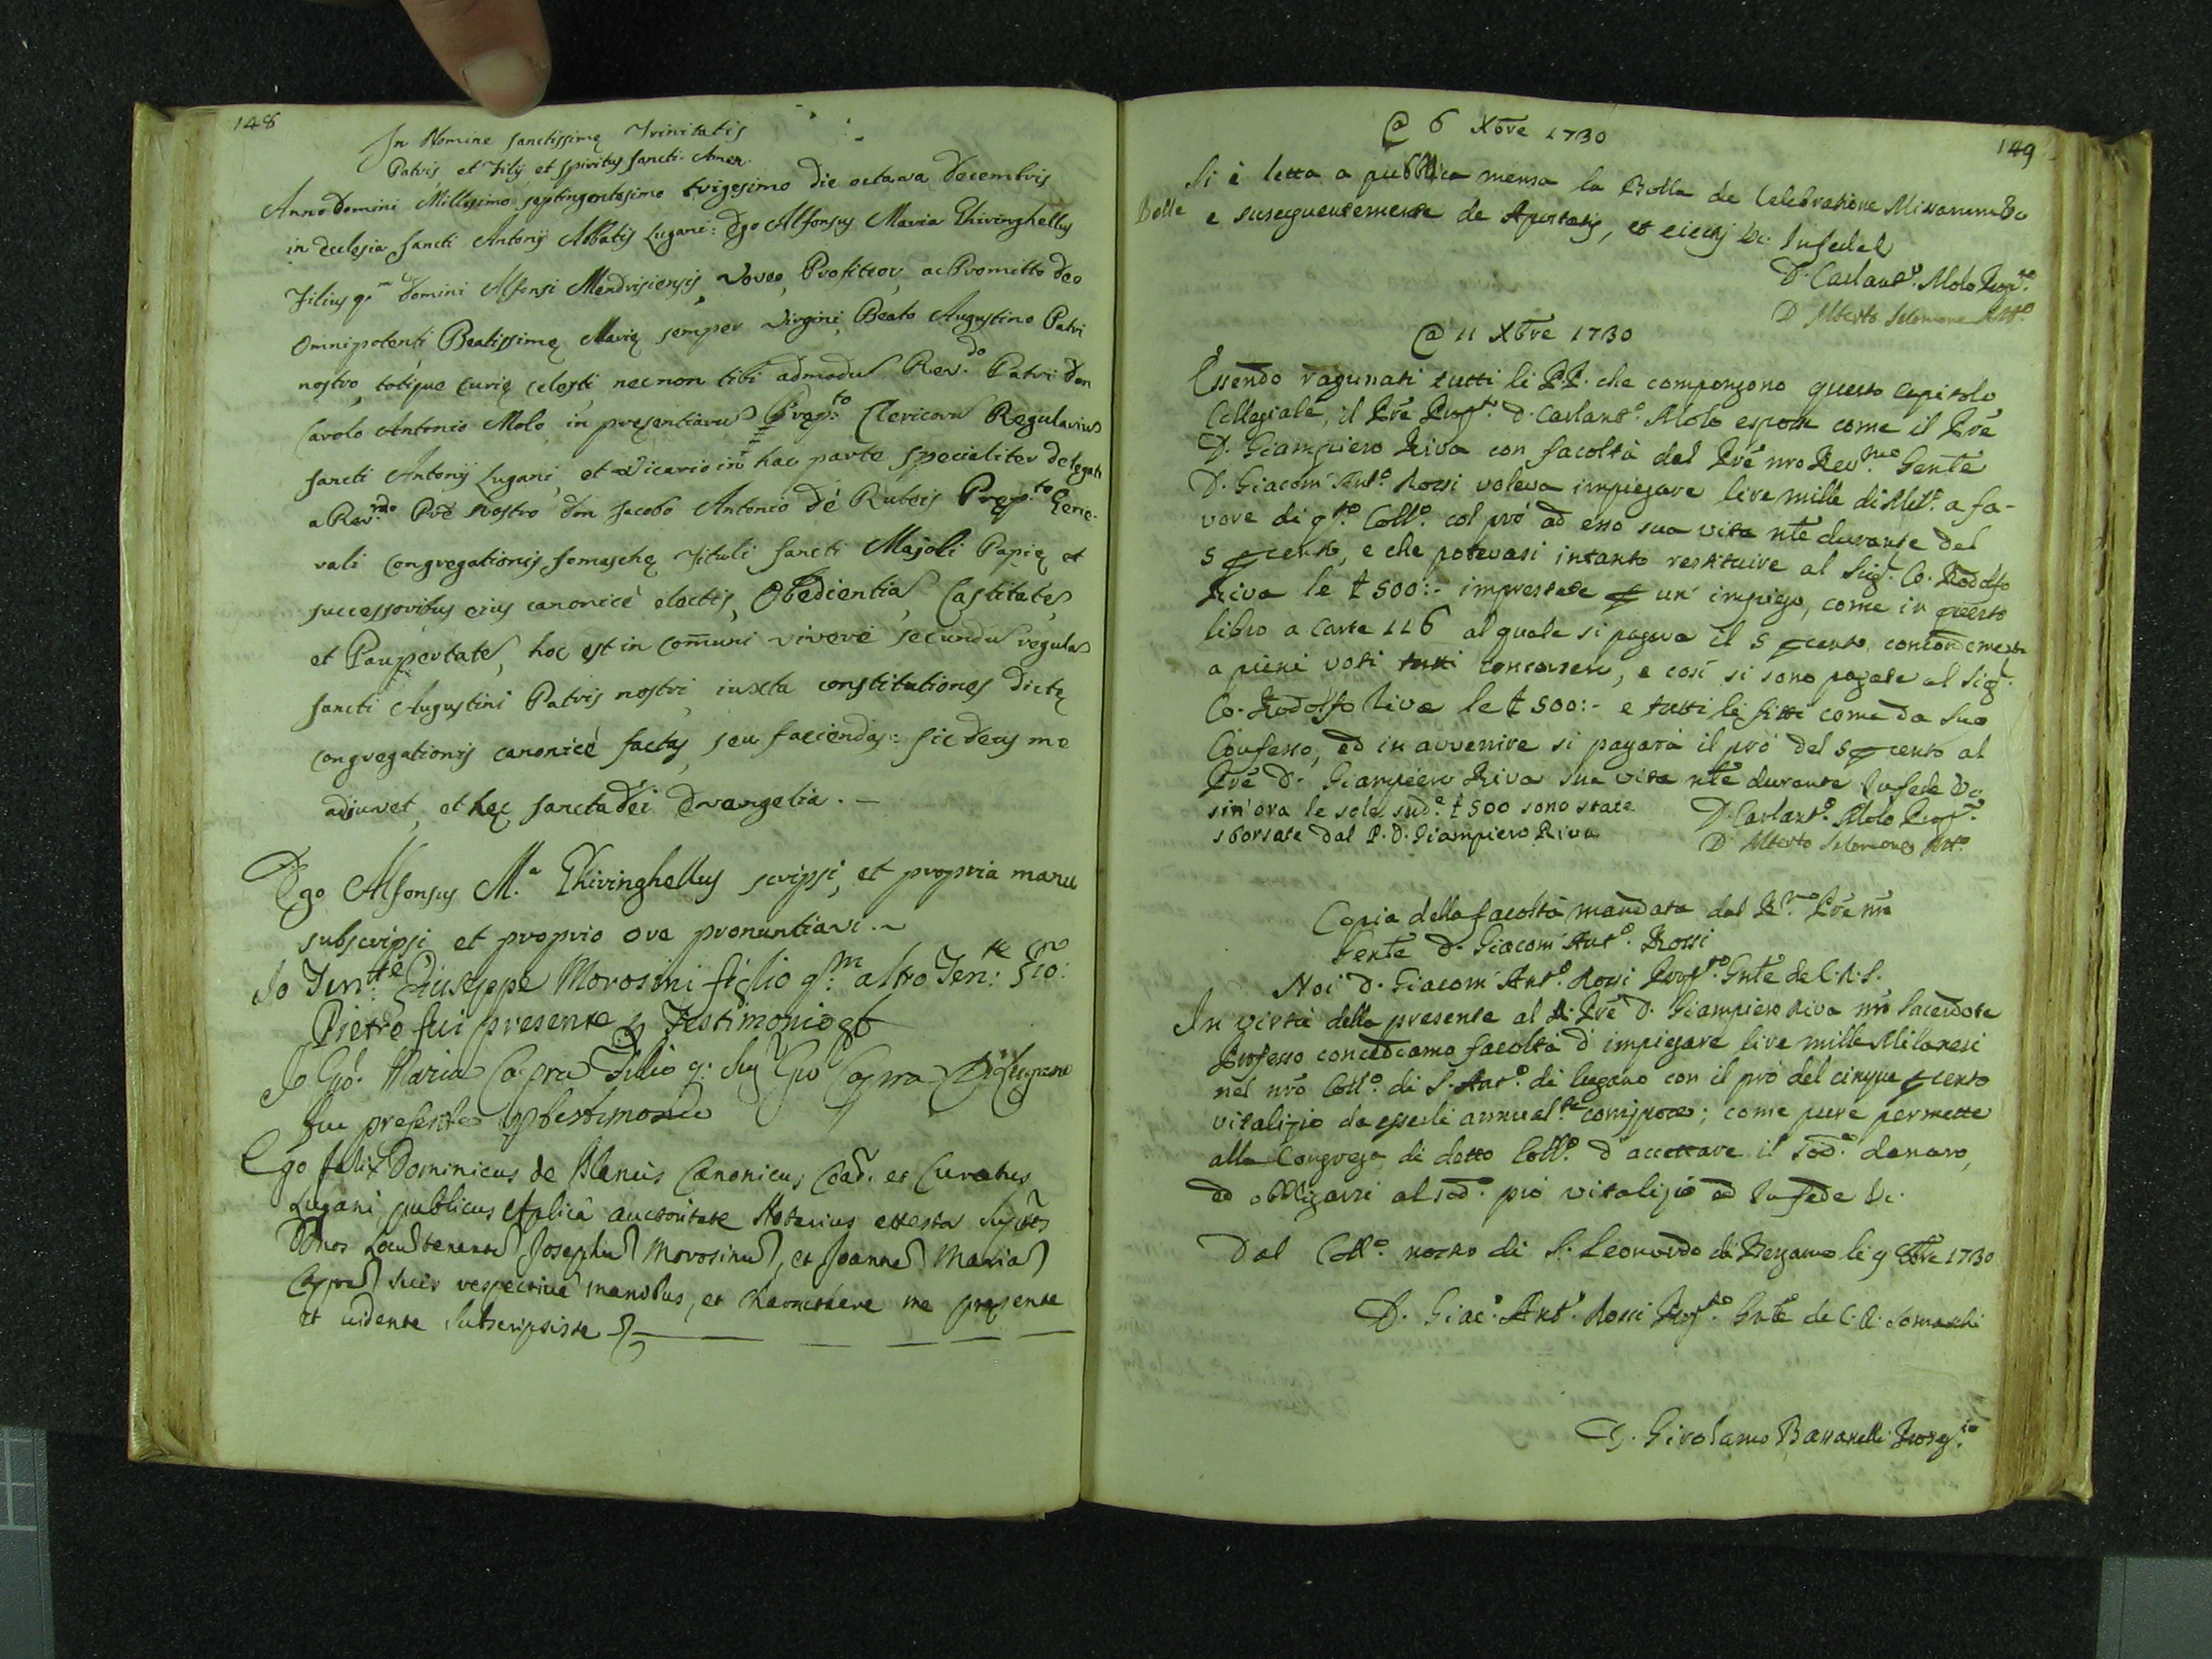 148
In Nomine sanctissimę Trinitatis
Patris, et Filij et spiritus sancti. Amen.
Anno Domini Millesimo septingentesimo trigesimo die octava Decembris
in Ecclesia sancti Antonij Abbatis Lugani: Ego Alfonsus Maria Ghiringhellus
Filius q.m Domini Alfonsi Mendrisiensis, Voveo, Profiteor, ac Promitto Deo
Omnipotenti Beatissimę Marię semper Virgini, Beato Augustino Patri
nostro, totique curię celesti, necnon tibi admodu Rev.do Patri Don
Carolo Antonio Molo, in presentiaru Prep.to Clericoru Regulariu
sancti Antonij Lugani, et Vicario in hac parte specialiter delegato
a Rev.mo Prē nostro Don Jacobo Antonio dè Rubeis Prep.to Gene-
rali Congregationis somaschę Tituli sancti Majoli Papię et
successoribus eius canonicè electis, Obedientia, Castitate,
et Paupertate, hoc est in com̄uni vivere secundu regula
sancti Augustini Patris nostri, iuxta constitutiones dictę
congregationis canonicè factas, seu faciendas: sic Deus me
adiuvet, et hęc sancta Dèi Evangelia. –
Ego Alfonsus M.a Ghiringhellus scripsi, et propria manu
subscripsi et proprio ore pronuntiavi. ~
Io Ten.te Giuseppe Morosini figlio q.m altro Ten.te Gio:
Pietro fui presente p Testimonio
Io Gio. Maria Capra Filio q. Sig Gio Capra Di Lugano
fui presente p testimonio
Ego felix Dominicus de Canonicus Coad. et Curatus
Lugani, publicus Aplicâ auctoritate Notarius attestor
Dnos Locutenente Josephu Morosinu, et Joanne Maria
Capra suis respective manibus, et charactere me presente
et vidente subscripsisse
149
@ 6 Xbre 1730
Si è letta a pubblica mensa la Bolla de Celebratione Missarum &c
Bolle e susseguentemente de Apostatis, et eiectis &c. In fede &
D. Carlant.o Molo Prep.to
D Alberto Selomone Att.o
@ 11 Xbre 1730
Essendo ragunati tutti li PP. che compongono questo Capitolo
Collegiale, il Prē Prep.to D. Carlant.o Molo espose come il Prē
D. Giampiero Riva con facoltà del Prē nro Rev.mo Genle
D. Giacom' Ant.o Rossi voleva impiegare lire mille di Mil.o a fa-
vore di q.to Coll.o col prò ad esso sua vita nle durante del
5 p cento, e che potevasi intanto restituire al Sig.r Co. Rodolfo
Riva le ₤ 500:- imprestate p un' impiego, come in questo
libro a carte 116 al quale si pagava il 5 p cento, concordemente
a pieni voti tutti concorsero, e così si sono pagate al Sig.r
Co. Rodolfo Riva le ₤ 500:- e tutti li fitti come da suo
Confesso, ed in avvenire si pagarà il prò del 5 p cento al
Prē D. Giampiero Riva sua vita nle durante In fede &c
sin'ora le sole sud.e ₤ 500 sono state
sborsate dal P. D. Giampiero Riva
D. Carlant.o Molo Prep.to
D Alberto Selomone Att.o
Copia della facoltà mandata dal R.mo Prē nro
Genle D. Giacom' Ant.o Rossi
Noi D. Giacom' Ant.o Rossi Prep.to Gnle de C. R. S.
In virtù della presente al P. Prē D. Giampiero Riva nro Sacerdote
Professo concediamo facoltà d' impiegare lire mille Milanesi
nel nro Coll.o di S. Ant.o di Lugano con il prò del cinque p cento
vitalizio da esserli annual.te corrisposto; come pure permette
alla Congrega di detto Coll.o d' accettare il sod.o denaro,
ed obbligarsi al sod.o prò vitalizio ed In fede &c.
Dal Coll.o nostro di S. Leonardo di Bergamo li 9 Xbre 1730
D. Giac.o Ant.o Rossi Prep.to Gnle de C. R. Somaschi
D. Girolamo Bassanelli Proseg.io